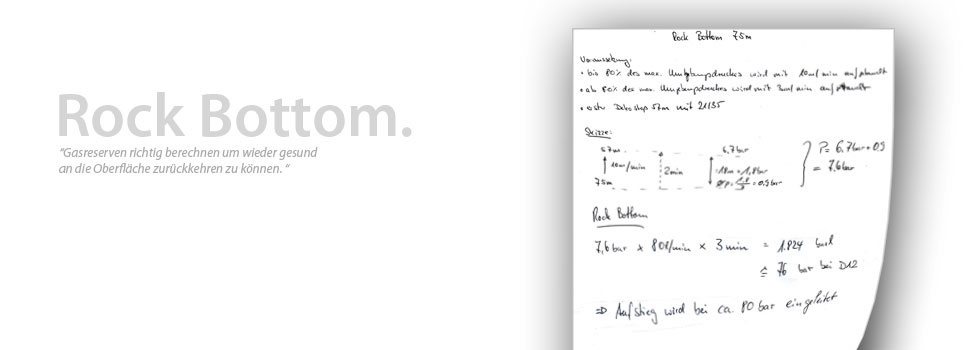 Rock Bottom.
"Gasreserven richtig berechnen um wieder gesund
an die Oberfläche zurückkehren zu können. "
Rock Bottom 75m
Voraussetzung:
• bis 80% des max. Umgebungsdruckes wird mit 10m/min
• ab 80% des max. Umgebungsdruckes wird mit 3m/min
• Dekostop 57m mit 21/35
Skizze:
57m
6,7bar
10m/min
2min
18m = 1,8bar
75m
= 0,9bar
P = 6,7bar + 0,9
= 7,6bar
Rock Bottom
7,6bar x 80l/min x 3min = 1.824 barl
≙ 76 bar bei D12
⇒ Aufstieg wird bei ca. 80 bar eingeleitet